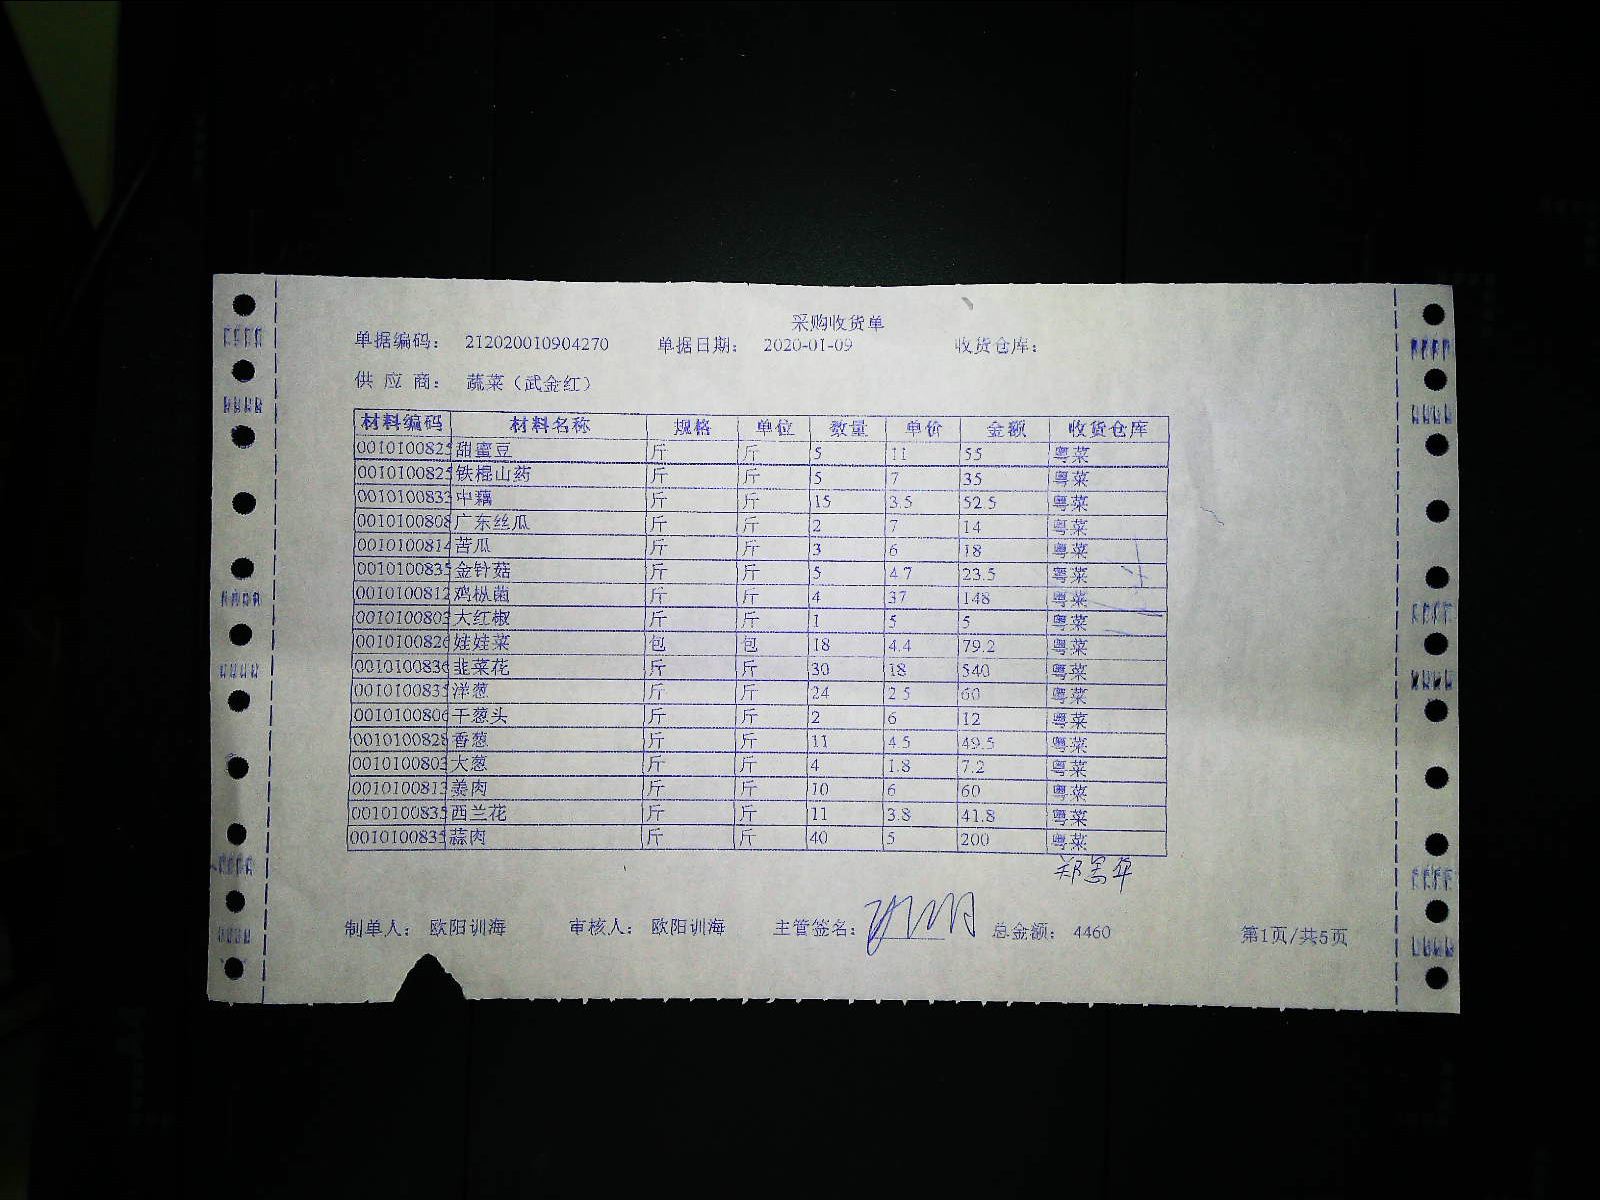 采购收货单
单据编码： 212020010904270 单据日期： 2020-01-09 收货仓库：
供 应 商： 蔬菜（武金红）
材料编码 材料名称 规格 单位 数量 单价 金额 收货仓库
0010100825 甜蜜豆 斤 斤 5 11 55 粤菜
0010100825 铁棍山药 斤 斤 5 7 35 粤菜
0010100833 中藕 斤 斤 15 3.5 52.5 粤菜
0010100808 广东丝瓜 斤 斤 2 7 14 粤菜
0010100814 苦瓜 斤 斤 3 6 18 粤菜
0010100835 金针菇 斤 斤 5 4.7 23.5 粤菜
0010100812 鸡枞菌 斤 斤 4 37 148 粤菜
0010100803 大红椒 斤 斤 1 5 5 粤菜
0010100826 娃娃菜 包 包 18 4.4 79.2 粤菜
0010100836 韭菜花 斤 斤 30 18 540 粤菜
0010100835 洋葱 斤 斤 24 2.5 60 粤菜
0010100806 干葱头 斤 斤 2 6 12 粤菜
0010100828 香葱 斤 斤 11 4.5 49.5 粤菜
0010100803 大葱 斤 斤 4 1.8 7.2 粤菜
0010100813 姜肉 斤 斤 10 6 60 粤菜
0010100835 西兰花 斤 斤 11 3.8 41.8 粤菜
0010100835 蒜肉 斤 斤 40 5 200 粤菜
制单人： 欧阳训海 审核人： 欧阳训海 主管签名： 总金额： 4460 第1页/共5页